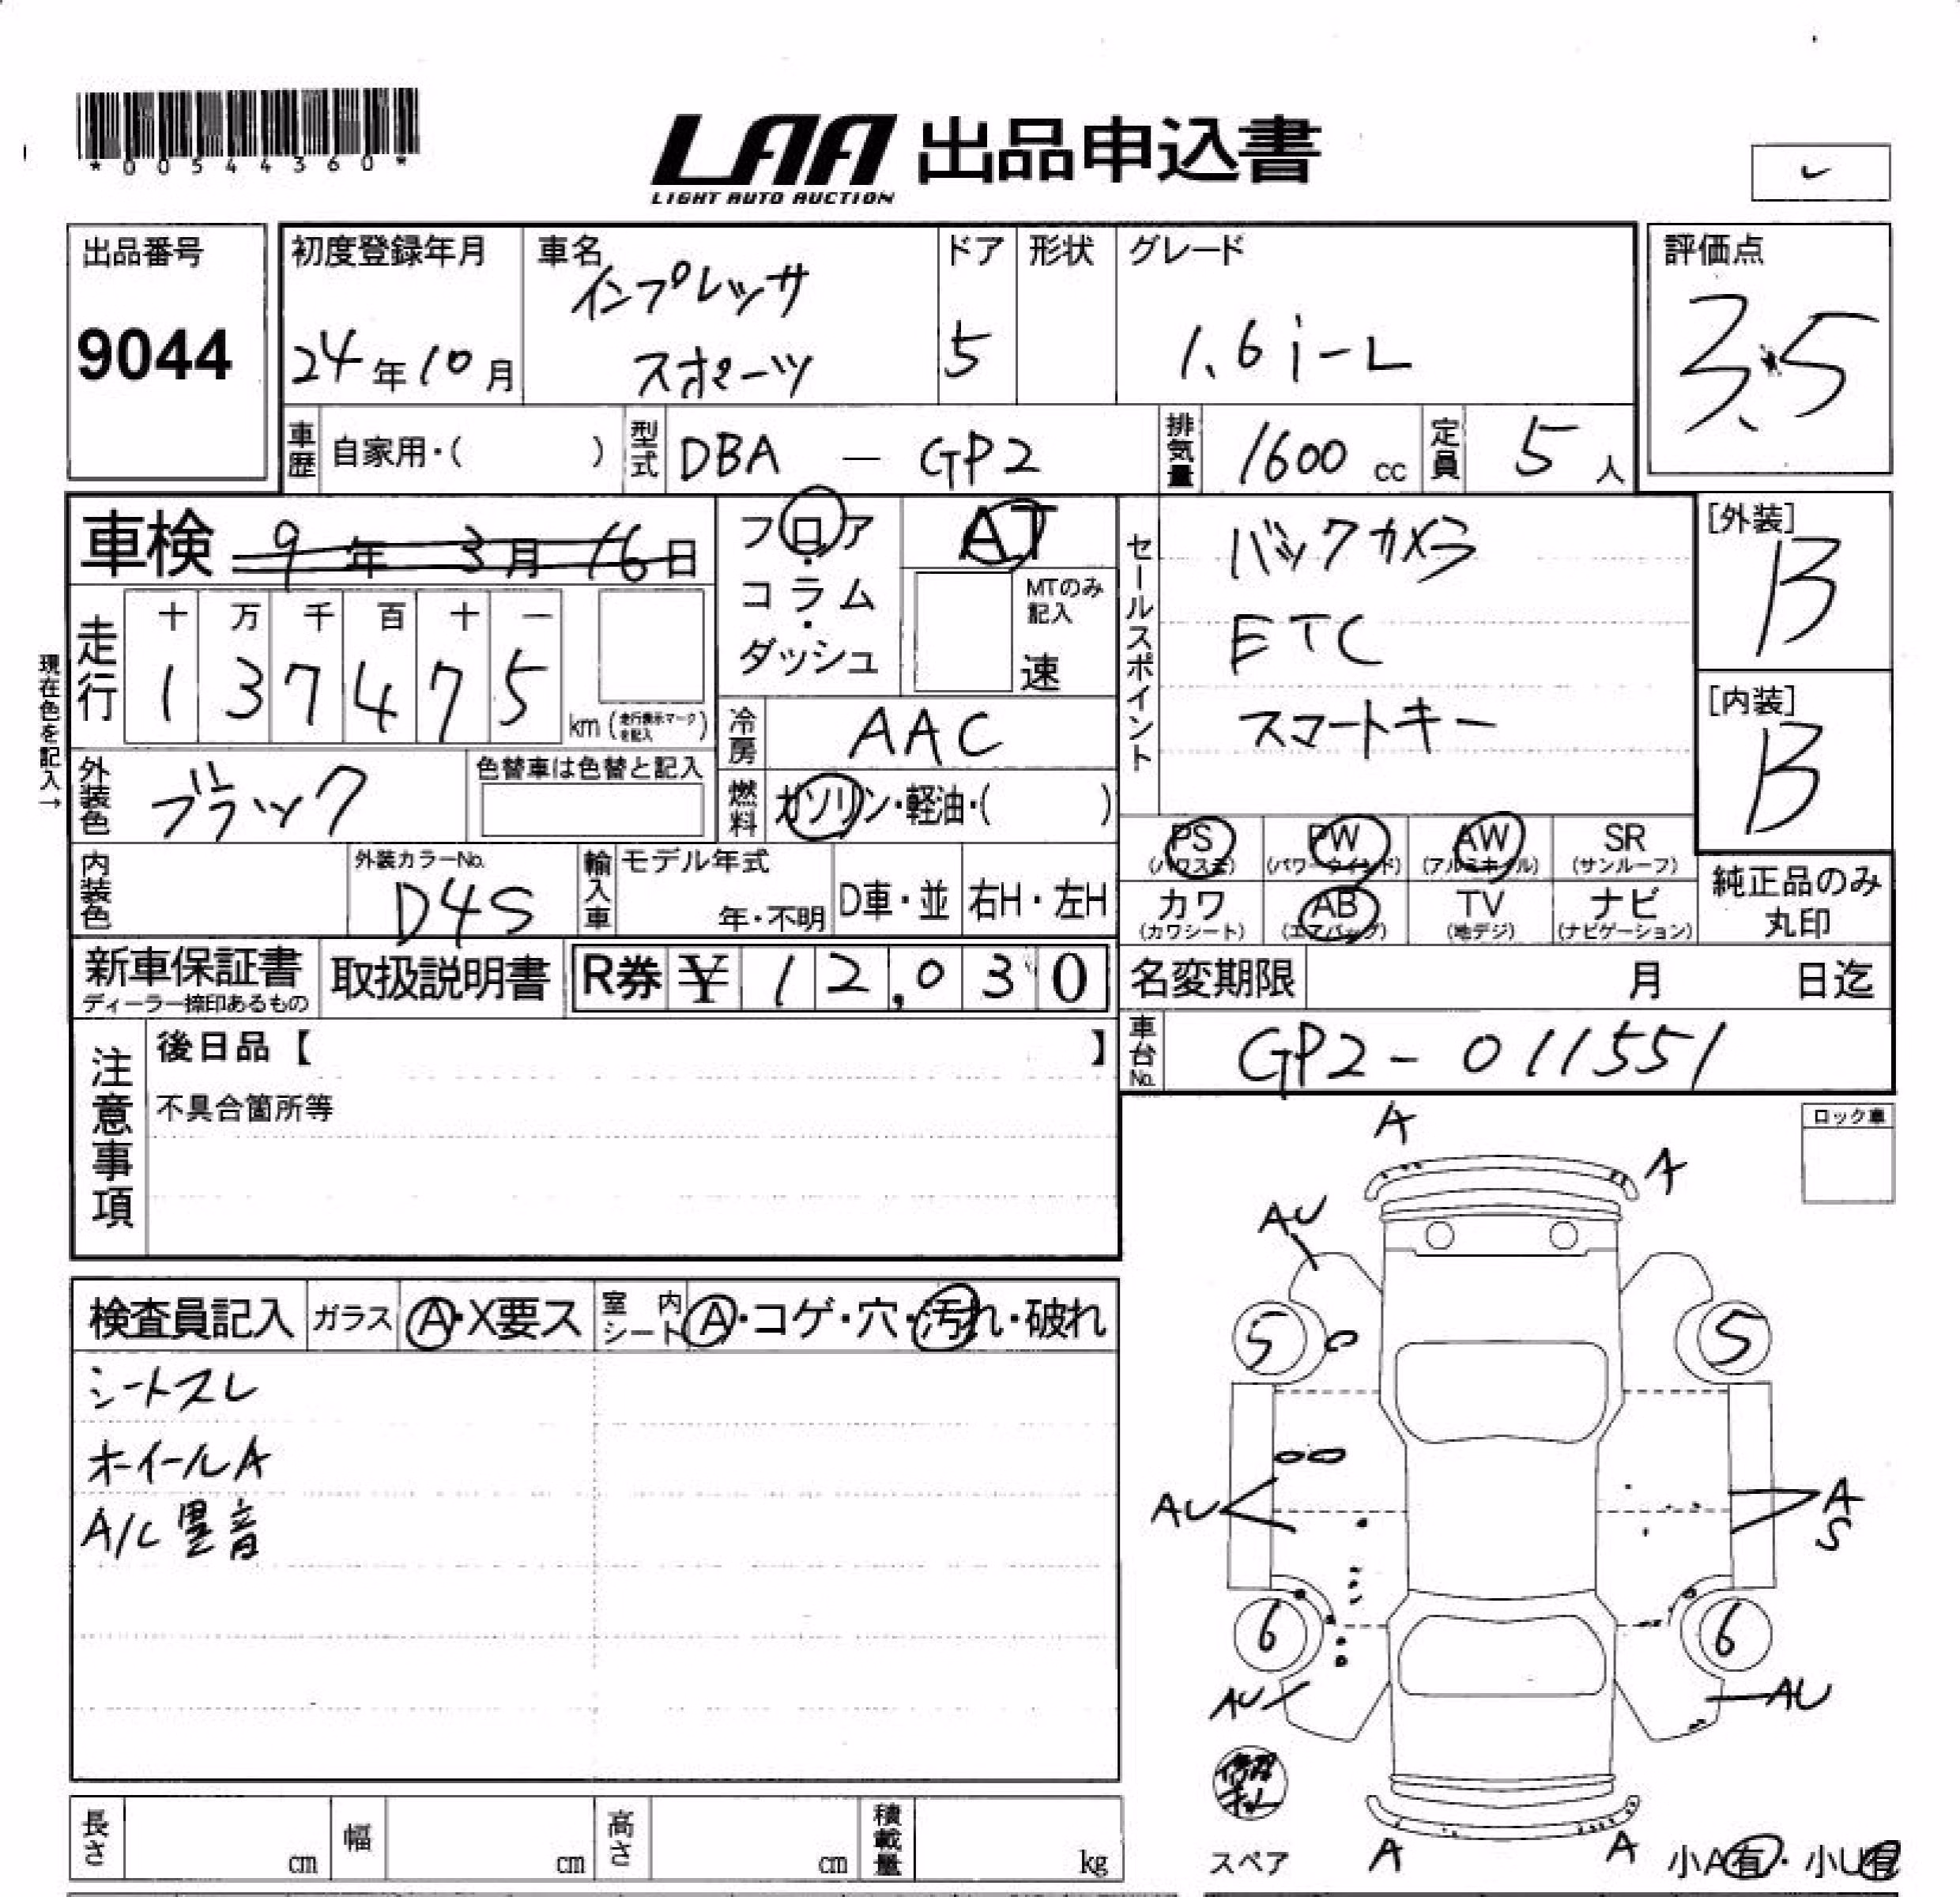 *00544360*
LAA 出品申込書
LIGHT AUTO AUCTION
出品番号
9044
初度登録年月
24年10月
車名
インプレッサ
スポーツ
ドア
5
形状
グレード
1.6i-L
評価点
3.5
車歴 自家用・( )
型式 DBA - GP2
排気量 1600 cc
定員 5人
車検 9年3月16日
フロア・コラム・ダッシュ
AT
MTのみ記入
速
セールスポイント
バックカメラ
ETC
スマートキー
[外装]
B
[内装]
B
現在色を記入→
走行
十 万 千 百 十 一
1 3 7 4 7 5
km (走行表示マークを記入)
冷房 AAC
外装色 ブラック
色替車は色替と記入
燃料 ガソリン・軽油・( )
PS (パワステ)
PW (パワーウインド)
AW (アルミホイル)
SR (サンルーフ)
カワ (カワシート)
AB (エアバッグ)
TV (地デジ)
ナビ (ナビゲーション)
純正品のみ
丸印
内装色
外装カラーNo.
D4S
輸入車
モデル年式
年・不明
D車・並
右H・左H
新車保証書
ディーラー捺印あるもの
取扱説明書
R券 ¥ 12,030
名変期限 月 日迄
車台No. GP2-011551
注意事項
後日品【 】
不具合箇所等
ロック車
検査員記入
ガラス A・X要ス
室内シート A・コゲ・穴・汚れ・破れ
シートスレ
ホイールA
A/C異音
A
A
AU
5
5
AU
A
S
6
6
AU
AU
スペア
A
A
小A有・小U有
長さ cm
幅 cm
高さ cm
積載量 kg